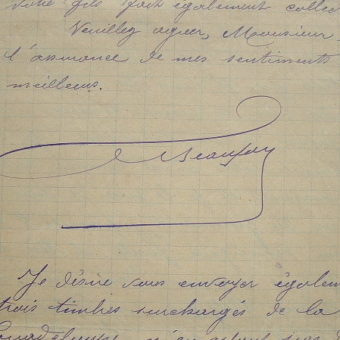 votre fils fait également collec
Veuillez agréer, Monsieur
l'assurance de mes sentiments
meilleurs.
Je désire vous envoyer égalem
trois timbres surchargés de la
Guadeloupe